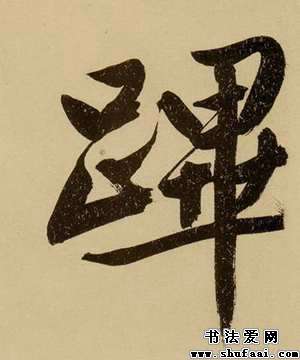 蹕
书法爱网
www.shufaai.com